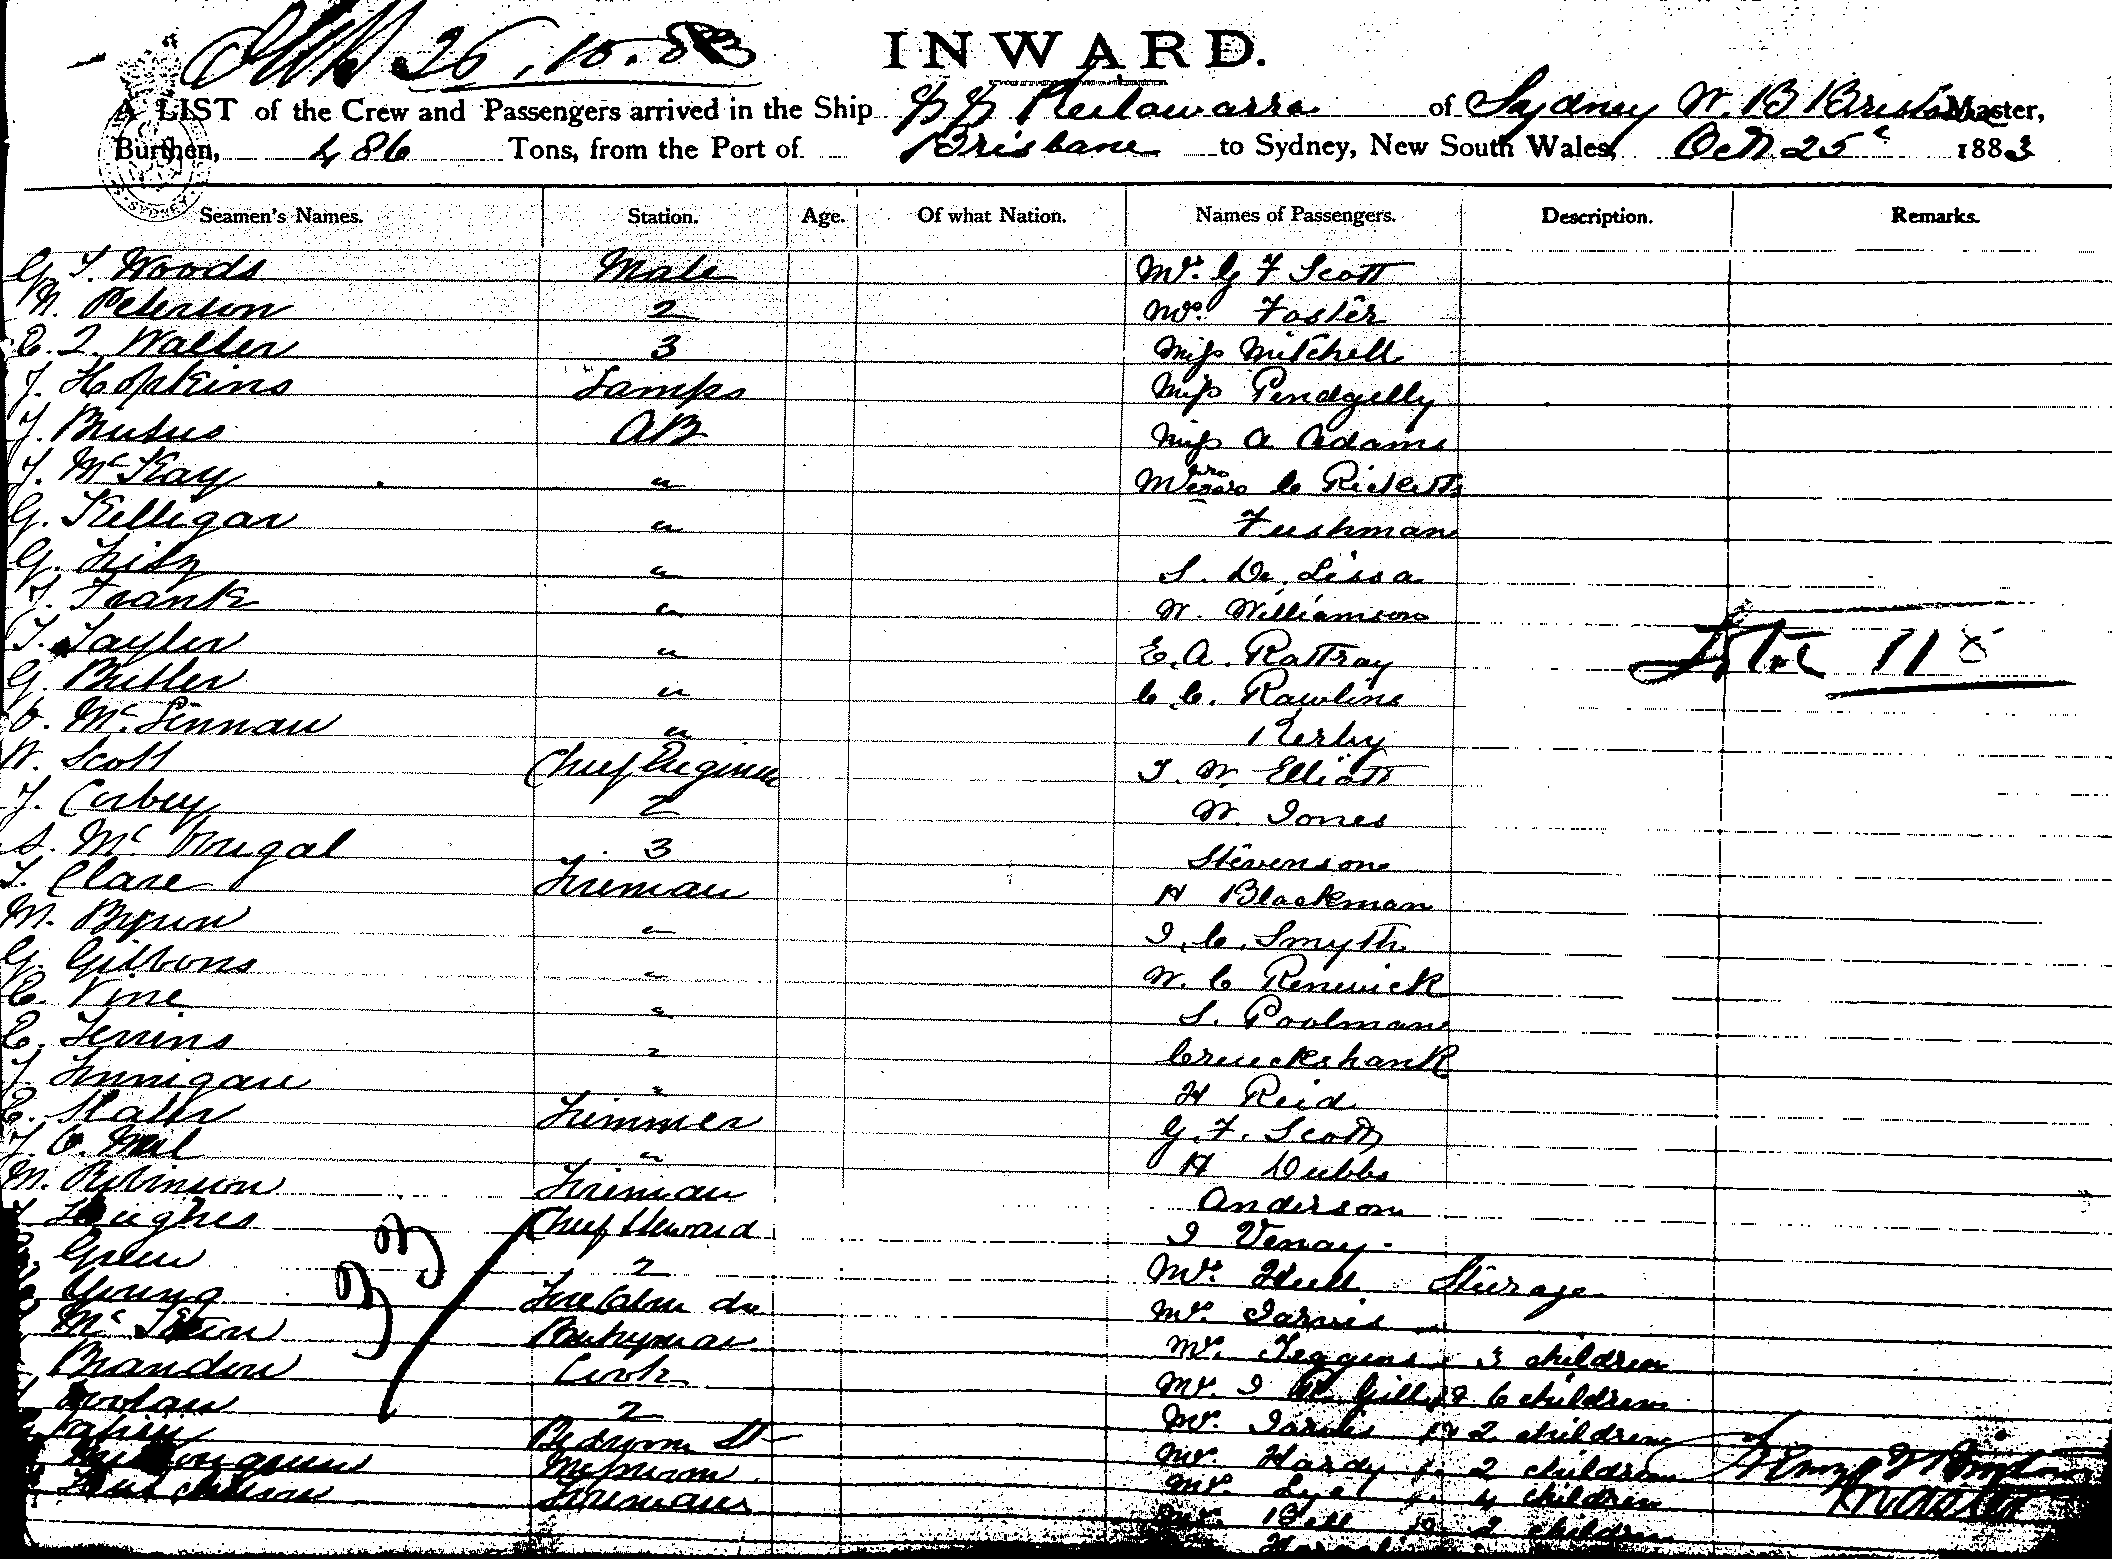 26.10.83
INWARD.
A LIST of the Crew and Passengers arrived in the Ship of Sydney W. B Master,
Burthen, 486 Tons, from the Port of Brisbane to Sydney, New South Wales, Oct 25 1883
SYDNEY
Seamen's Names. Station. Age. Of what Nation. Names of Passengers. Description. Remarks.
G. T. Woods Mate Mrs. G F Scott
M. Peterson 2 Mrs Foster
C. T. Walter 3 Miss Mitchell
J. Hopkins Lamps Miss Pendgelly
J. Brutus AB Miss A Adams
J. McKay " C Ricketts
G. Killigan " Fushman
G. " S. De Lissa
J. Frank " W. Williamson
T. Tayler " E. A. Rattray
Total 118
G. Butler " C. C. Rawlins
Mc Linnan " Kerby
W. Scott Chief Engineer T. W. Elliott
J. Corbey 2 W. Jones
Mc Dougal 3 Stevenson
T. Clare Fireman H Blackman
M. Byrun " J. C. Smyth
G. Gibbons " W. C Renwick
C. Vine " S. Poolman
C. " Cruickshank
J. Finnigan " H Reid
E. Slater Trimmer G. F. Scott
J. O. " H Dubbs
M. Robinson Fireman Anderson
Hughes Chief Steward J Venay
Green 2 Mr. Hull
Young Fore Cabin do Mr. Jarvis
33
Mc Pantryman Mr. 3 children
Brandon Cook Mr. J Gill 6 children
2 Mr. 2 children
Bedroom St Mr. Hardy 2 children
Messroom Mr. Lye 4 children
Firemans Mr. Bell 2 children
Master